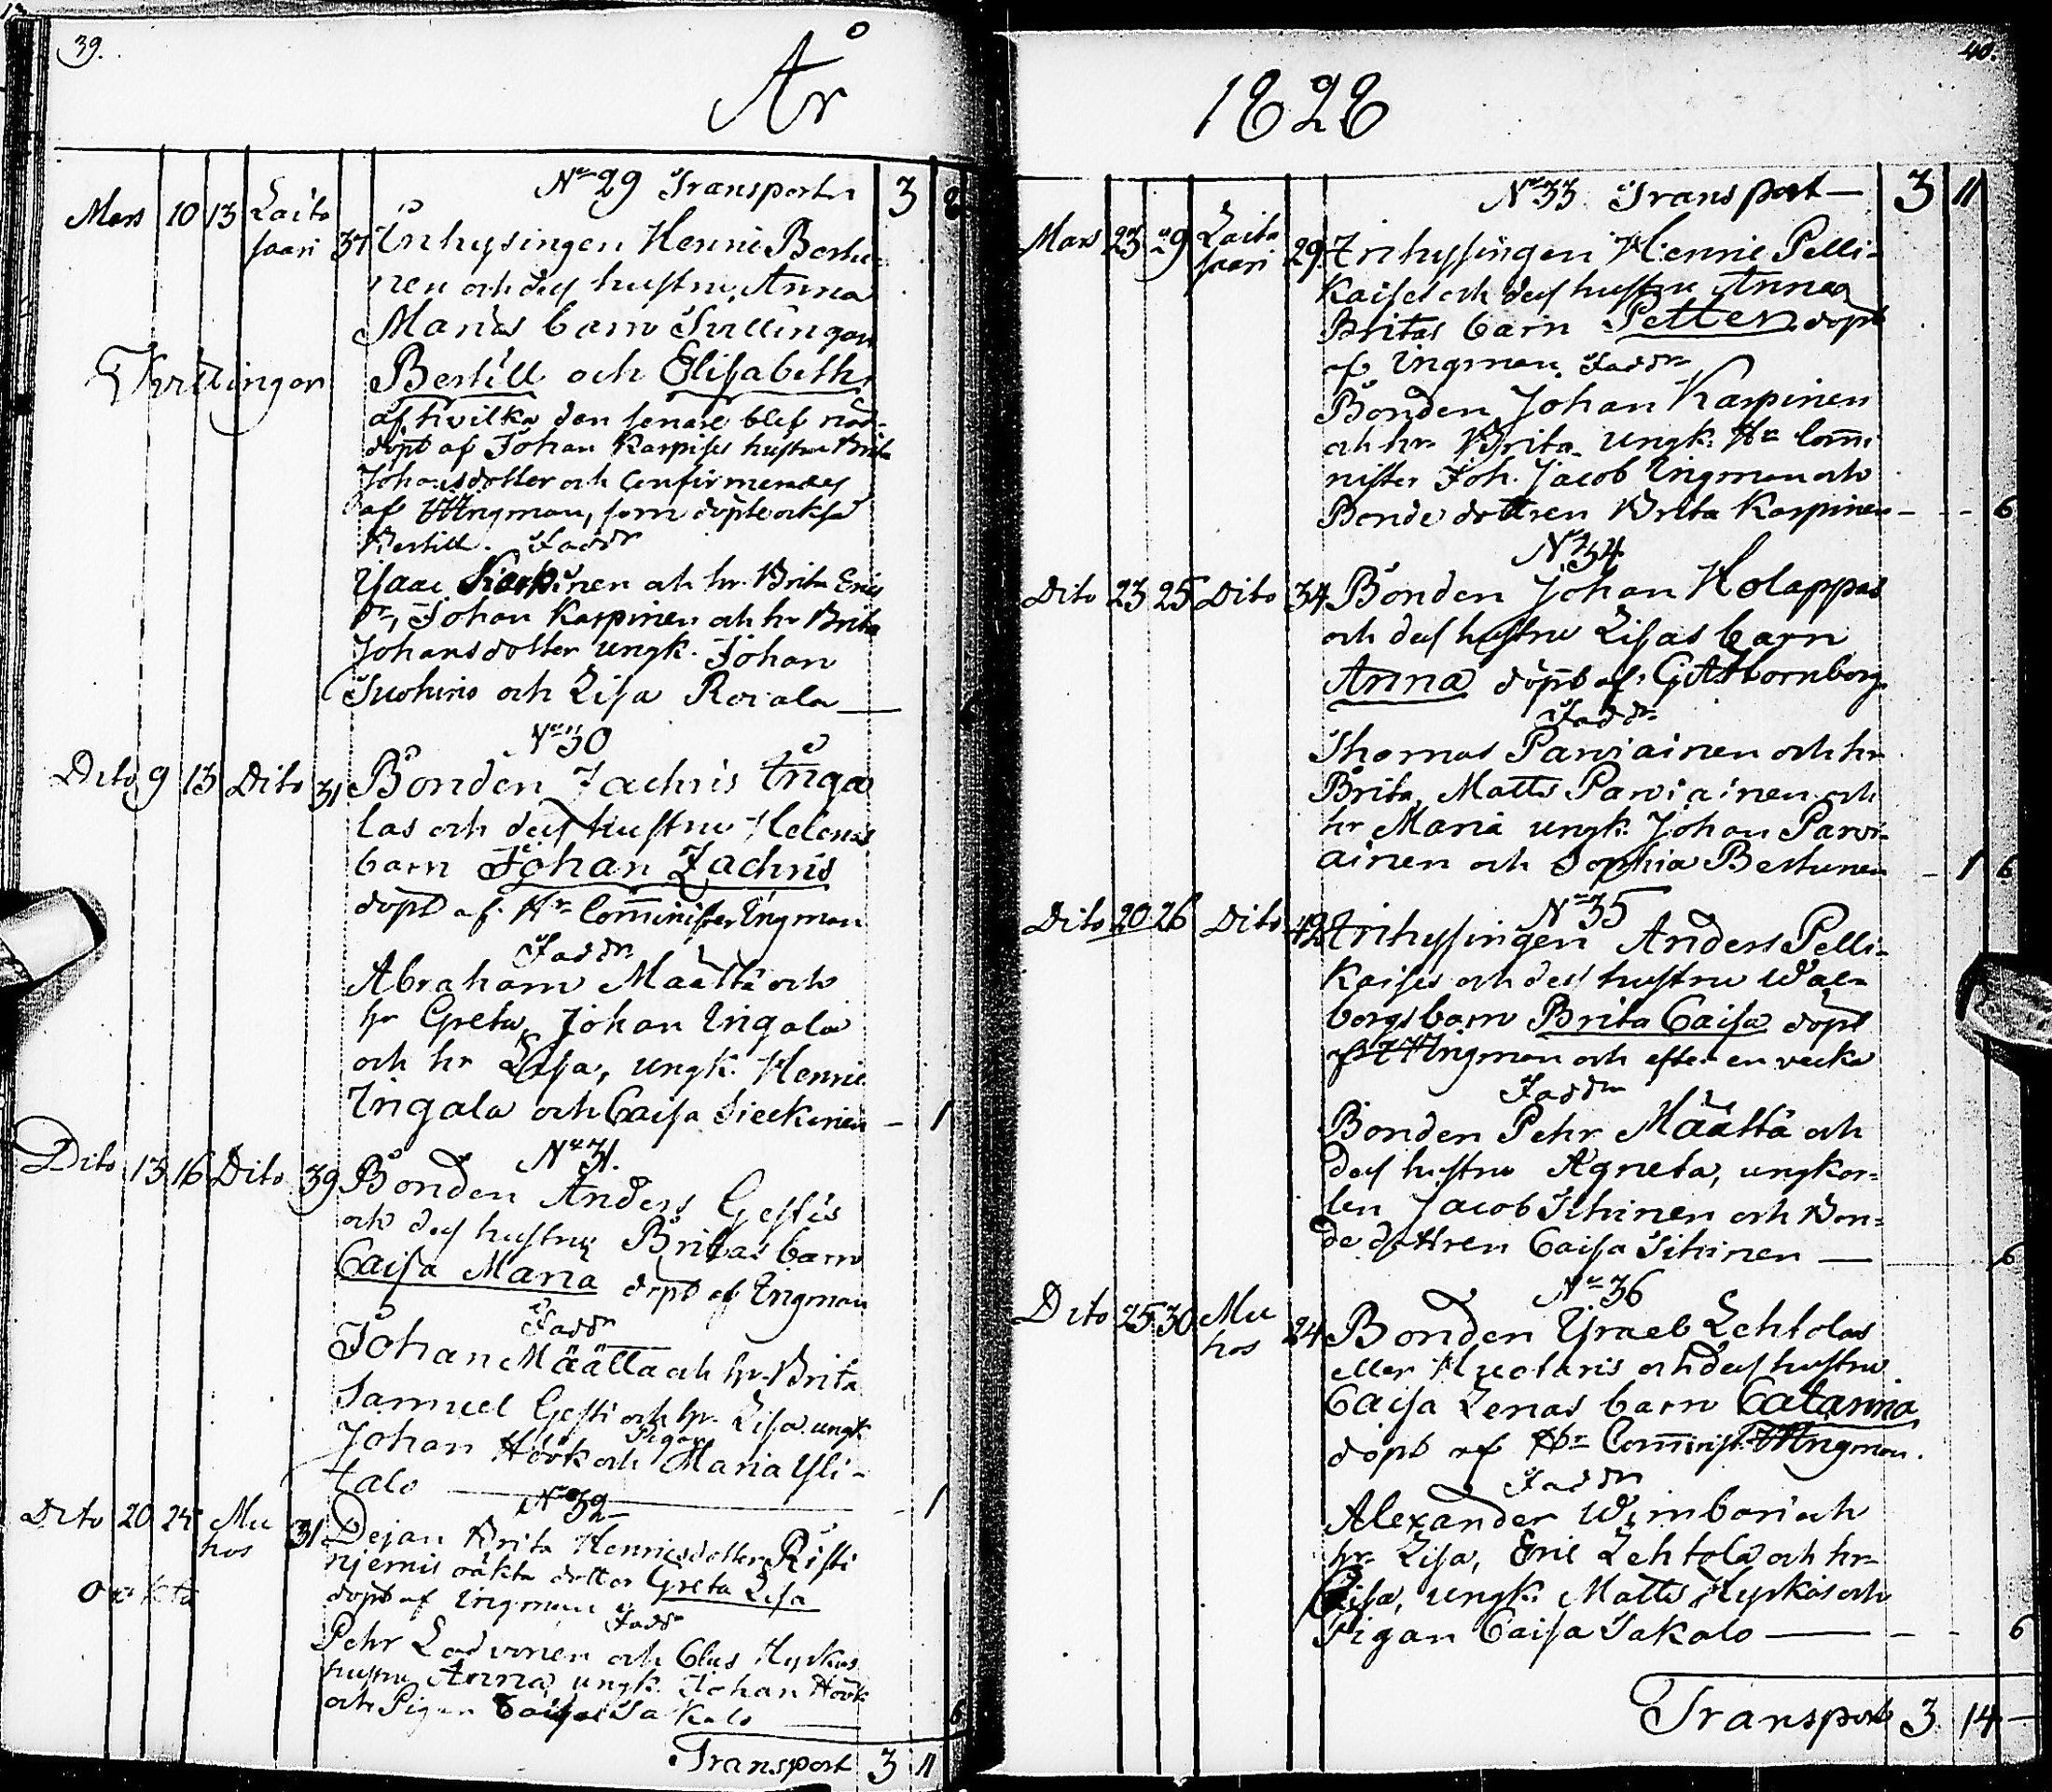 39.
År
No 29 Transport 3 8
Mars 10 13 Laitasaari 37 Inhysingen Henric Bertu-
nen och dess hustru Anna
Marias barn Tvillingar
Tvillingar Bertill och Elisabeth
af hvilka den senare blef nöd-
döpt af Johan Karpises hustru Brita
Johansdotter och Confirmerades
af Ingman, som döpte också
Bertill. Faddr
Isaac Karpinen och hr Brita Erics
dr, Johan Karpinen och hr Brita
Johansdotter ungk. Johan
och Lisa
No 30
Dito 9 13 Dito 31 Bonden Zachris Inga
las och dess hustru Helenas
barn Johan Zachris
döpt af Hr Comminister Ingman
Faddr
Abraham Määttä och
hr Greta, Johan Ingala
och hr Lisa, ungk. Henric
Ingala och Caisa Sieckinen - 1
No 31.
Dito 13 16 Dito 39 Bonden Anders Gestis
och dess hustru Britas barn
Caisa Maria döpt af Ingman
Faddr
Johan Määtta och hr Brita
Samuel Gesti och hr Lisa ungk
Johan Hövk och Pigan Maria Yli-
talo - 1
No 32
Dito 20 25 Muhos 31 Pejan Brita Henricsdotter Risti
njemis oäkta dotter Greta Lisa
Oäkta döpt af Ingman Faddr
Pehr och Clas Hyrkäs
hustru Anna, ungk. Johan Hövk
och Pigan Caisa Sakalo 6
Transport 3 11
40.
1828
No 33 Transport 3 11
Mars 23 29 Laitasaari 29 Inhysingen Henric Pelli-
kaises och dess hustru Anna
Britas barn Petter döpt
af Ingman. Faddr
Bonden Johan Karpinen
och hr Brita ungk. Hr Commi
nister Joh. Jacob Ingman och
Bonde dottren Brita Karpinen - - 6
No 34
Dito 23 25 Dito 34 Bonden Johan Holappas
och dess hustru Lisas barn
Anna döpt af Thornborg.
Faddr
Thomas Parviainen och hr
Brita, Matts Parviainen och
hr Maria ungk. Johan Parvi-
ainen och Sophia Bertunen - 1 6
No 35
Dito 20 26 Dito 42 Inhysingen Anders Pelli-
kaises och dess hustru Wal-
borgs barn Brita Caisa döpt
af Ingman och efter en vecka
Faddr
Bonden Pehr Määttä och
dess hustru Agneta, ungkar-
len Jacob Tihinen och Bon-
de dottren Caisa Tihinen 6
No 36
Dito 25 30 Muhos 24 Bonden Israel Lehtolas
eller Huotaris och dess hustru
Caisa Lenas barn Catarina
döpt af Hr Comminist. Ingman.
Faddr
Alexander Wimbari och
hr Lisa, Eric Lehtola och hr
Caisa, ungk. Matts Hyrkäs och
Pigan Caisa Sakalo - - 6
Transport 3 14 -